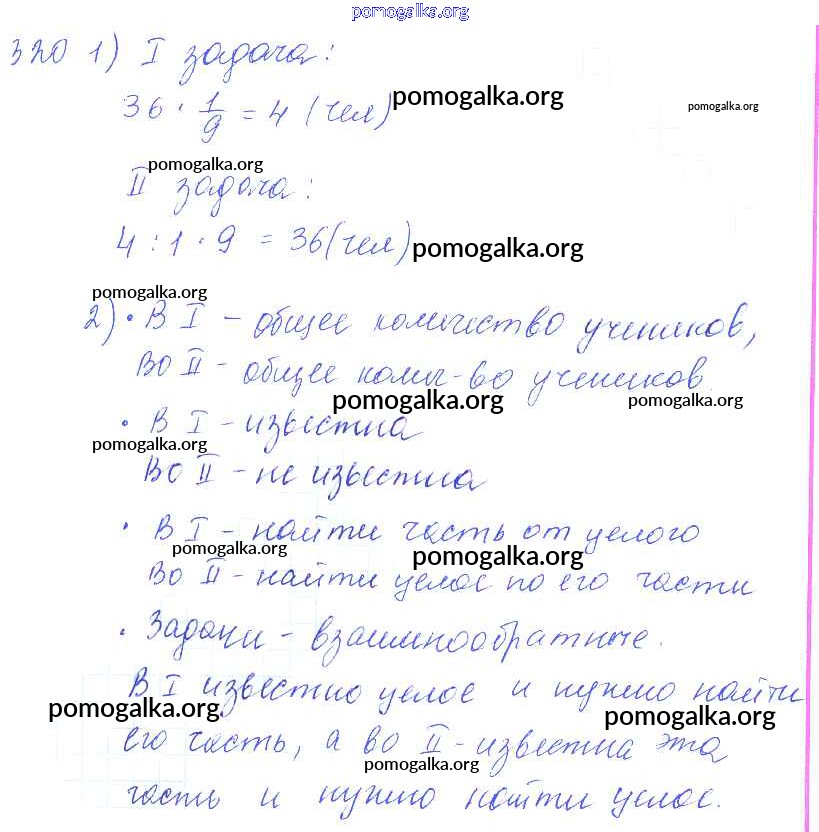 pomogalka.org
320 1) I задача:
36 · 1/9 = 4 (чел) pomogalka.org pomogalka.org
pomogalka.org
II задача:
4 : 1 · 9 = 36 (чел) pomogalka.org
pomogalka.org
2) · В I – общее количество учеников,
Во II – общее колич-во учеников.
pomogalka.org pomogalka.org
· В I – известна
pomogalka.org
Во II – не известна
· В I – найти часть от целого
pomogalka.org pomogalka.org
Во II – найти целое по его части
· Задачи – взаимнообратные.
В I известно целое и нужно найти
pomogalka.org pomogalka.org
его часть, а во II – известна эта
pomogalka.org
часть и нужно найти целое.